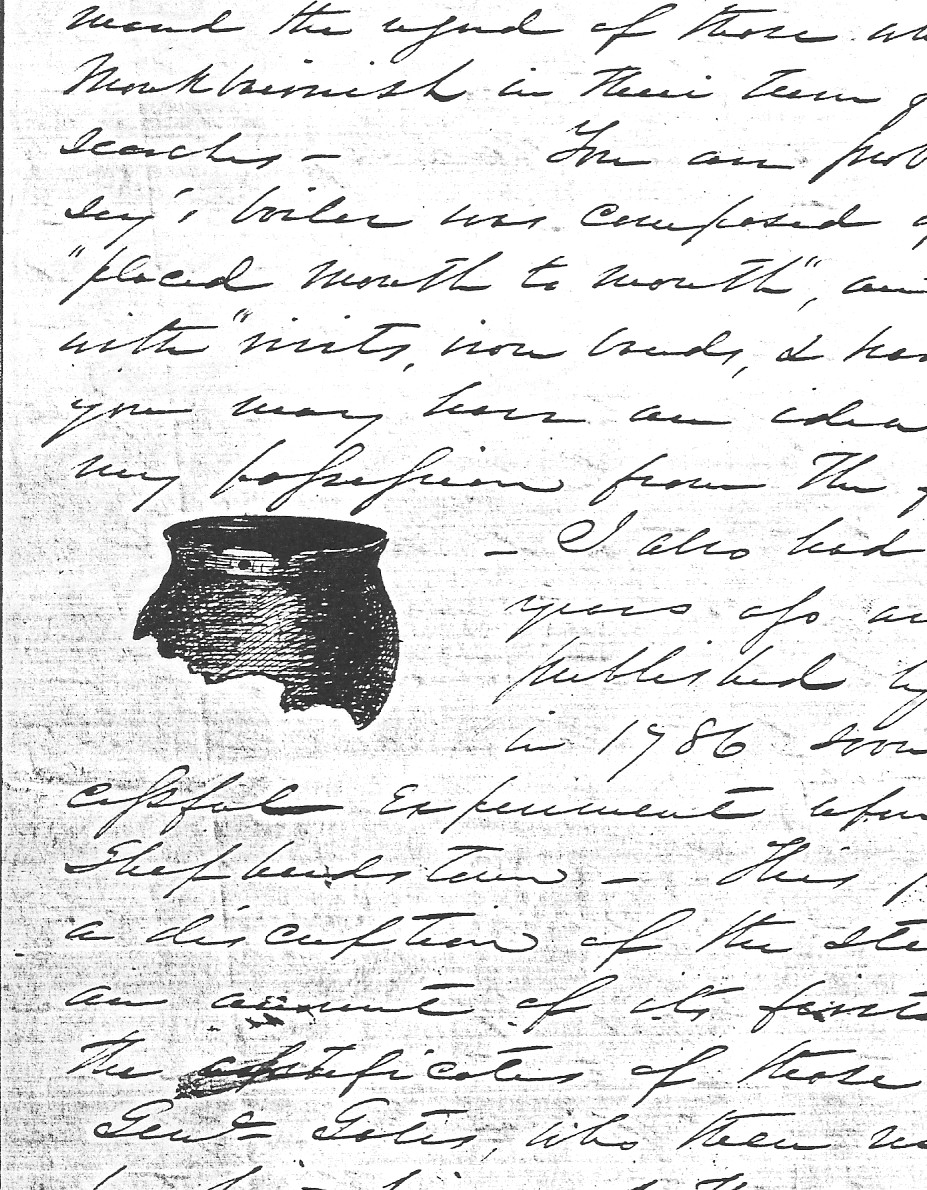 mand the regard of those
Monkbarnish in their turn
searches – You are prob
sey's boiler was composed
"placed mouth to mouth", an
with "rivits, iron bands, &
you may have an idea
my possession from The
– I also had
years ago
published by
in 1786 soon
cessful experiment upon
Shepherdstown – This p
a discription of the Ste
an account of its first
the certificates of those
Genl Gates, who then